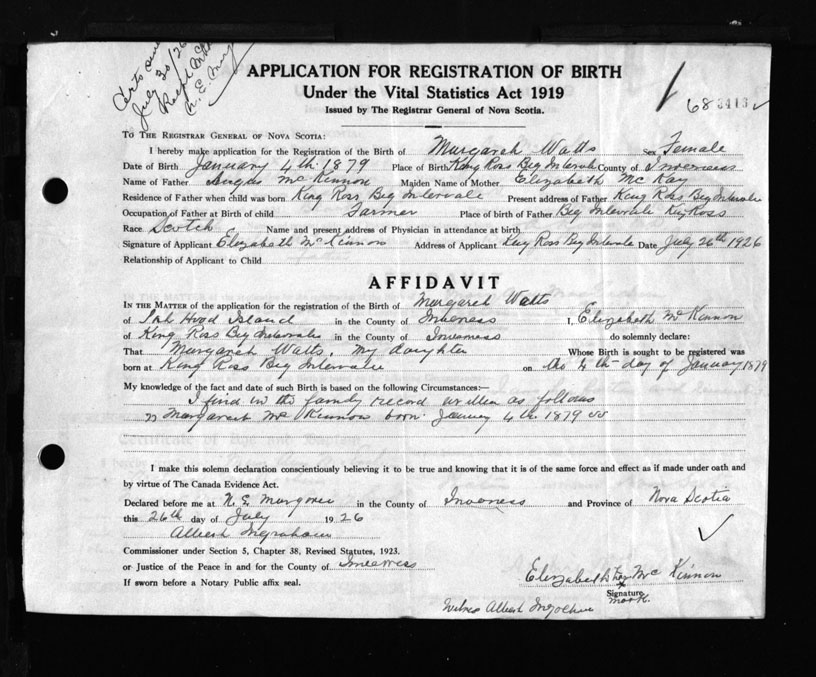 Certs
July 30/26
APPLICATION FOR REGISTRATION OF BIRTH
Under the Vital Statistics Act 1919
Issued by The Registrar General of Nova Scotia.
68 3413
TO THE REGISTRAR GENERAL OF NOVA SCOTIA:
I hereby make application for the Registration of the Birth of Margaret Watts Sex Female
Date of Birth January 4th 1879 Place of Birth King Ross Big Intervale County of Inverness
Name of Father Angus McKinnon Maiden Name of Mother Elizabeth McKay
Residence of Father when child was born King Ross Big Intervale Present address of Father King Ross Big Intervale
Occupation of Father at Birth of child Farmer Place of birth of Father Big Intervale King Ross
Race Scotch Name and present address of Physician in attendance at birth
Signature of Applicant Elizabeth McKinnon Address of Applicant King Ross Big Intervale Date July 26th 1926
Relationship of Applicant to Child
AFFIDAVIT
IN THE MATTER of the application for the registration of the Birth of Margaret Watts
of Port Hood Island in the County of Inverness I, Elizabeth McKinnon
of King Ross Big Intervale in the County of Inverness do solemnly declare:
That Margaret Watts, my daughter Whose Birth is sought to be registered was
born at King Ross Big Intervale on the 4th day of January 1879
My knowledge of the fact and date of such Birth is based on the following Circumstances:—
I find in the family record written as follows
Margaret McKinnon born January 4th 1879
I make this solemn declaration conscientiously believing it to be true and knowing that it is of the same force and effect as if made under oath and
by virtue of The Canada Evidence Act.
Declared before me at N. E. Margaree in the County of Inverness and Province of Nova Scotia
this 26th day of July 1926
Albert Ingraham
Commissioner under Section 5, Chapter 38, Revised Statutes, 1923.
or Justice of the Peace in and for the County of Inverness
If sworn before a Notary Public affix seal.
Elizabeth her x McKinnon
Signature
mark.
Witness Albert Ingraham